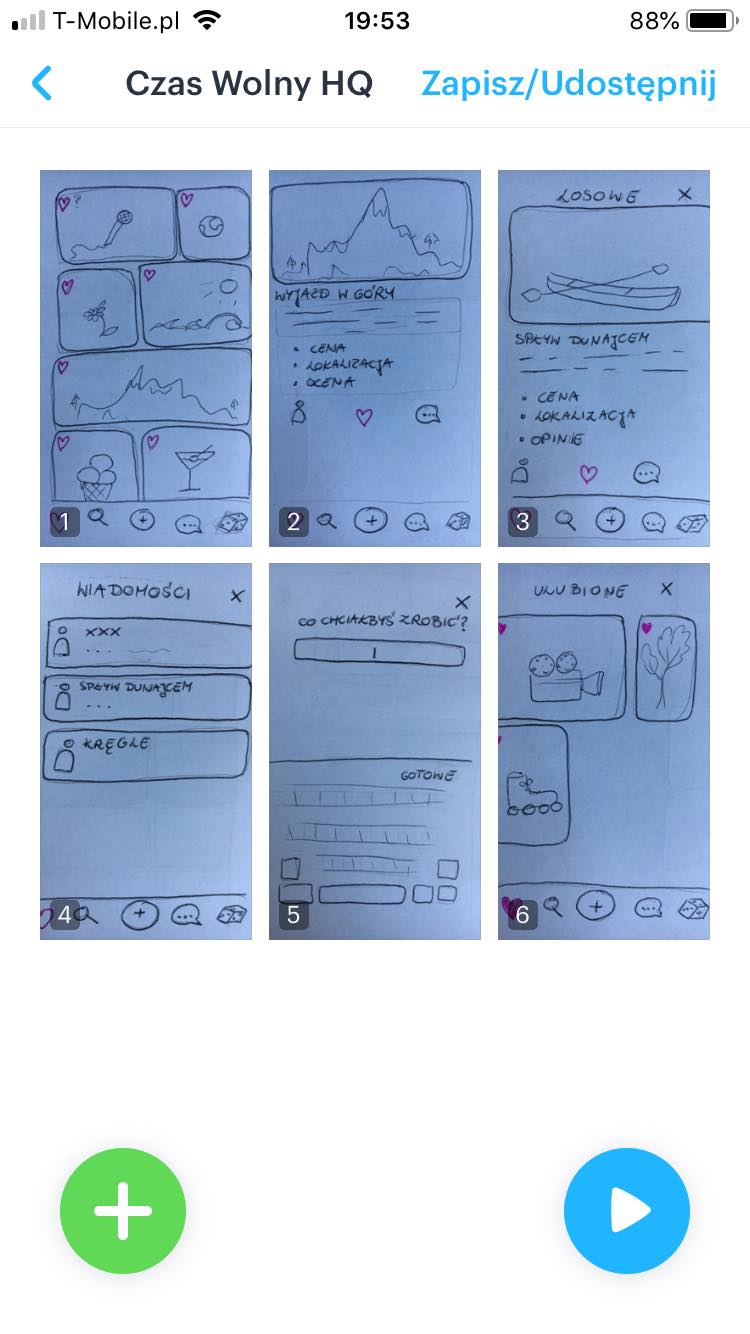 T-Mobile.pl 19:53 88%
Czas Wolny HQ Zapisz/Udostępnij
?
1
WYJAZD W GÓRY
• CENA
• LOKALIZACJA
• OCENA
2
LOSOWE X
SPŁYW DUNAJCEM
• CENA
• LOKALIZACJA
• OPINIE
3
WIADOMOŚCI X
XXX
...
SPŁYW DUNAJCEM
...
KRĘGLE
4
X
CO CHCIAŁBYŚ ZROBIĆ?
GOTOWE
5
ULUBIONE X
6